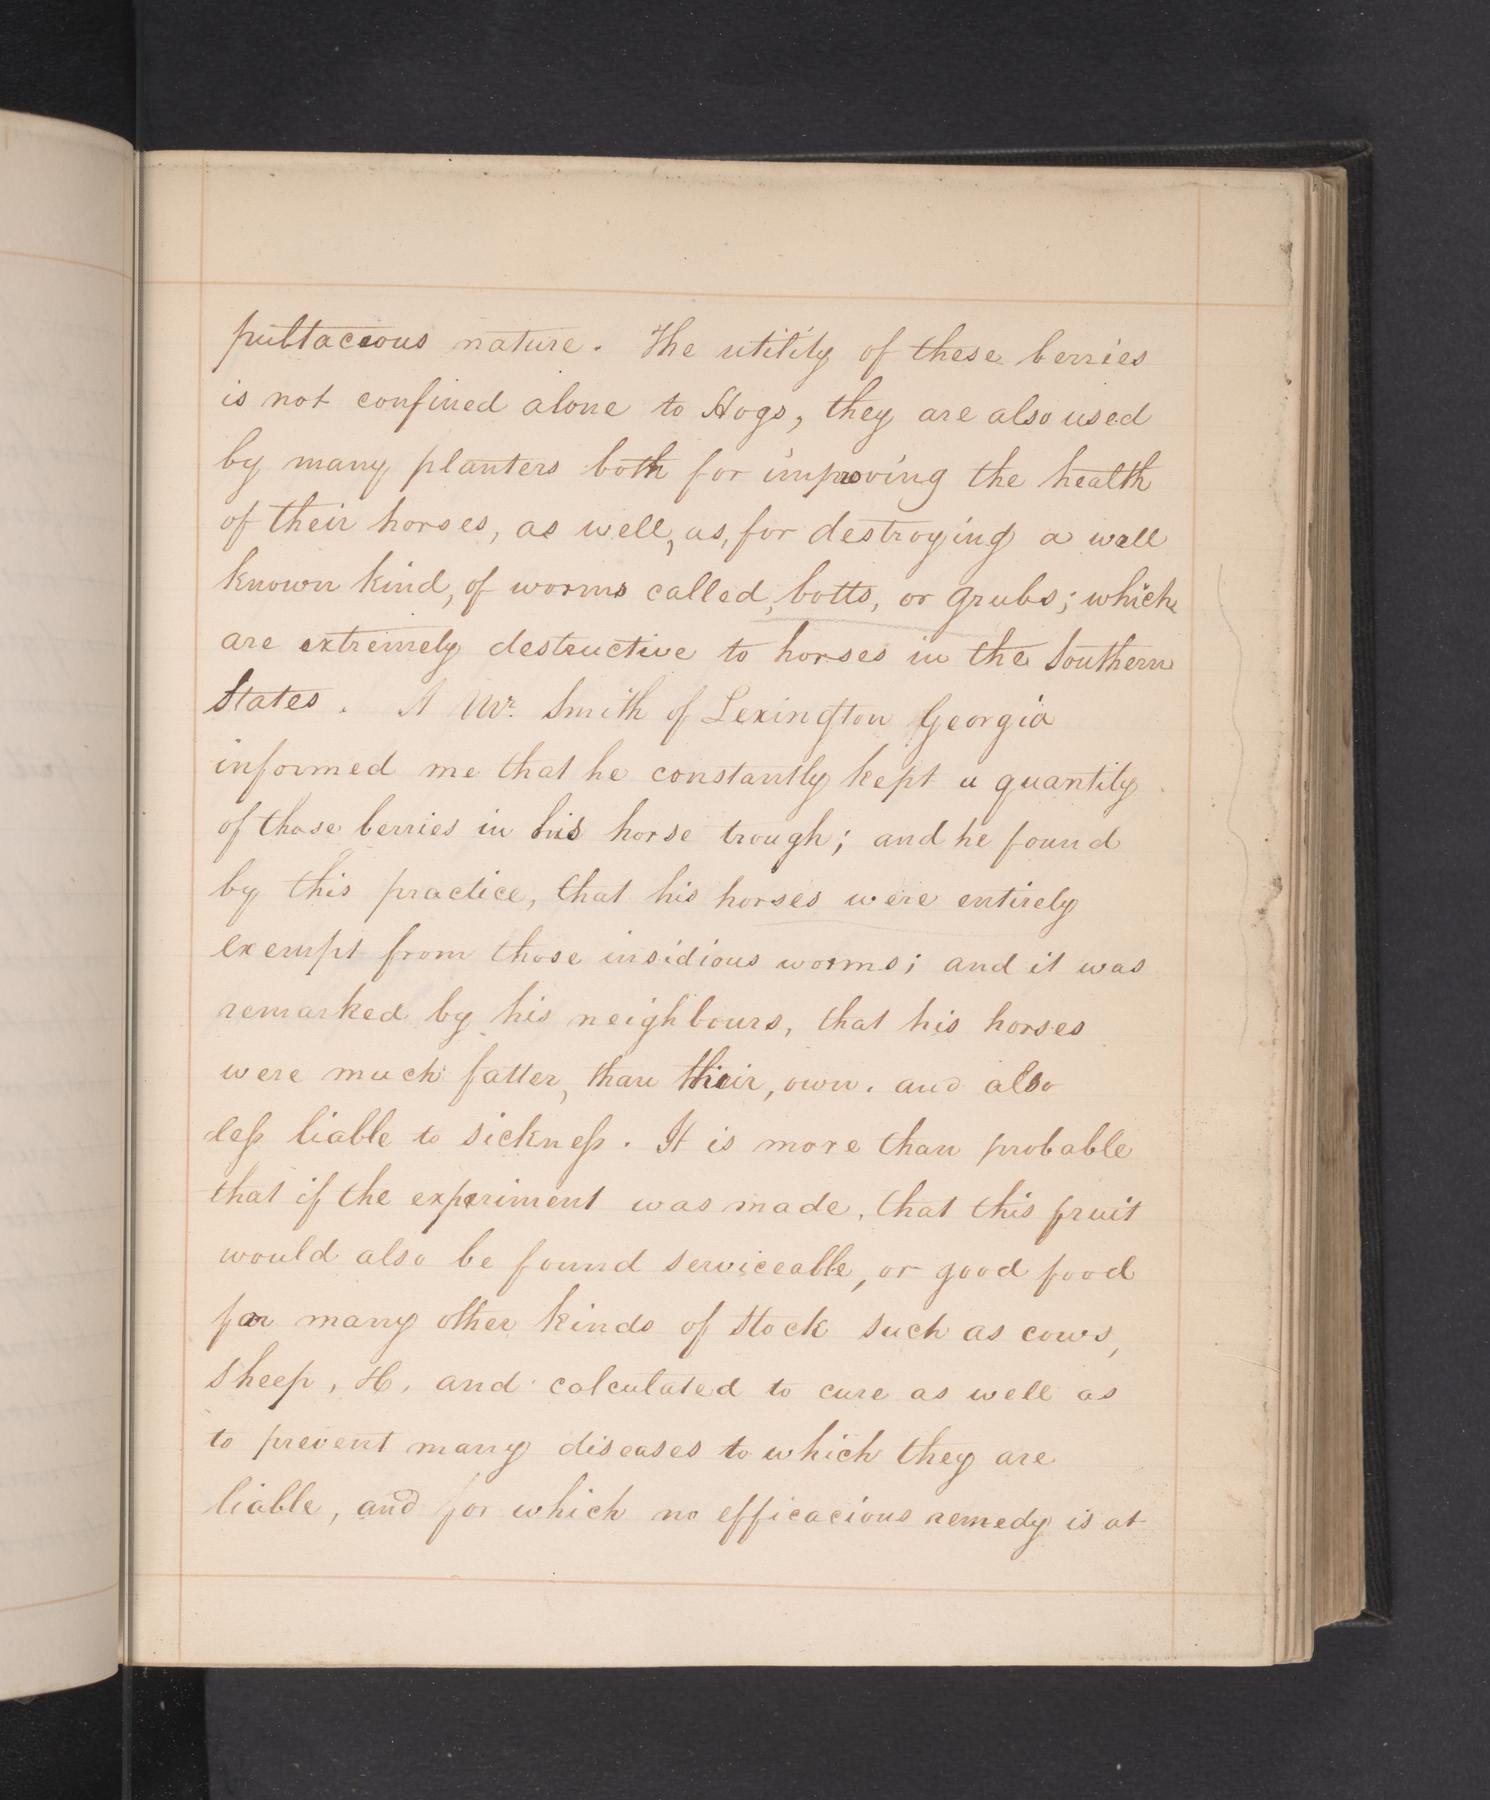 pultaceous nature. The utility of these berries
is not confined alone to Hogs, they are also used
by many planters both for improving the health
of their horses, as well, as, for destroying a well
known kind, of worms called, botts, or grubs; which
are extremely destructive to horses in the Southern
States. A Mr. Smith of Lexington Georgia
informed me that he constantly kept a quantity
of those berries in his horse trough; and he found
by this practice, that his horses were entirely
exempt from those insidious worms; and it was
remarked by his neighbours, that his horses
were much fatter, than their, own. and also
less liable to sickness. It is more than probable
that if the experiment was made, that this fruit
would also be found serviceable, or good food
for many other kinds of Stock such as cows,
Sheep, &c. and calculated to cure as well as
to prevent many diseases to which they are
liable, and for which no efficacious remedy is at